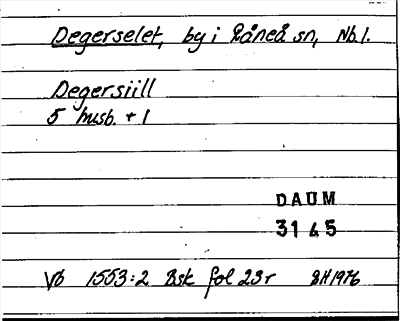 Degerselet, by i Råneå sn, Nb.l.
Degersiill
5 husb. + 1
DAUM
3145
Vb 1553:2 Bsk fol 23r SH1976